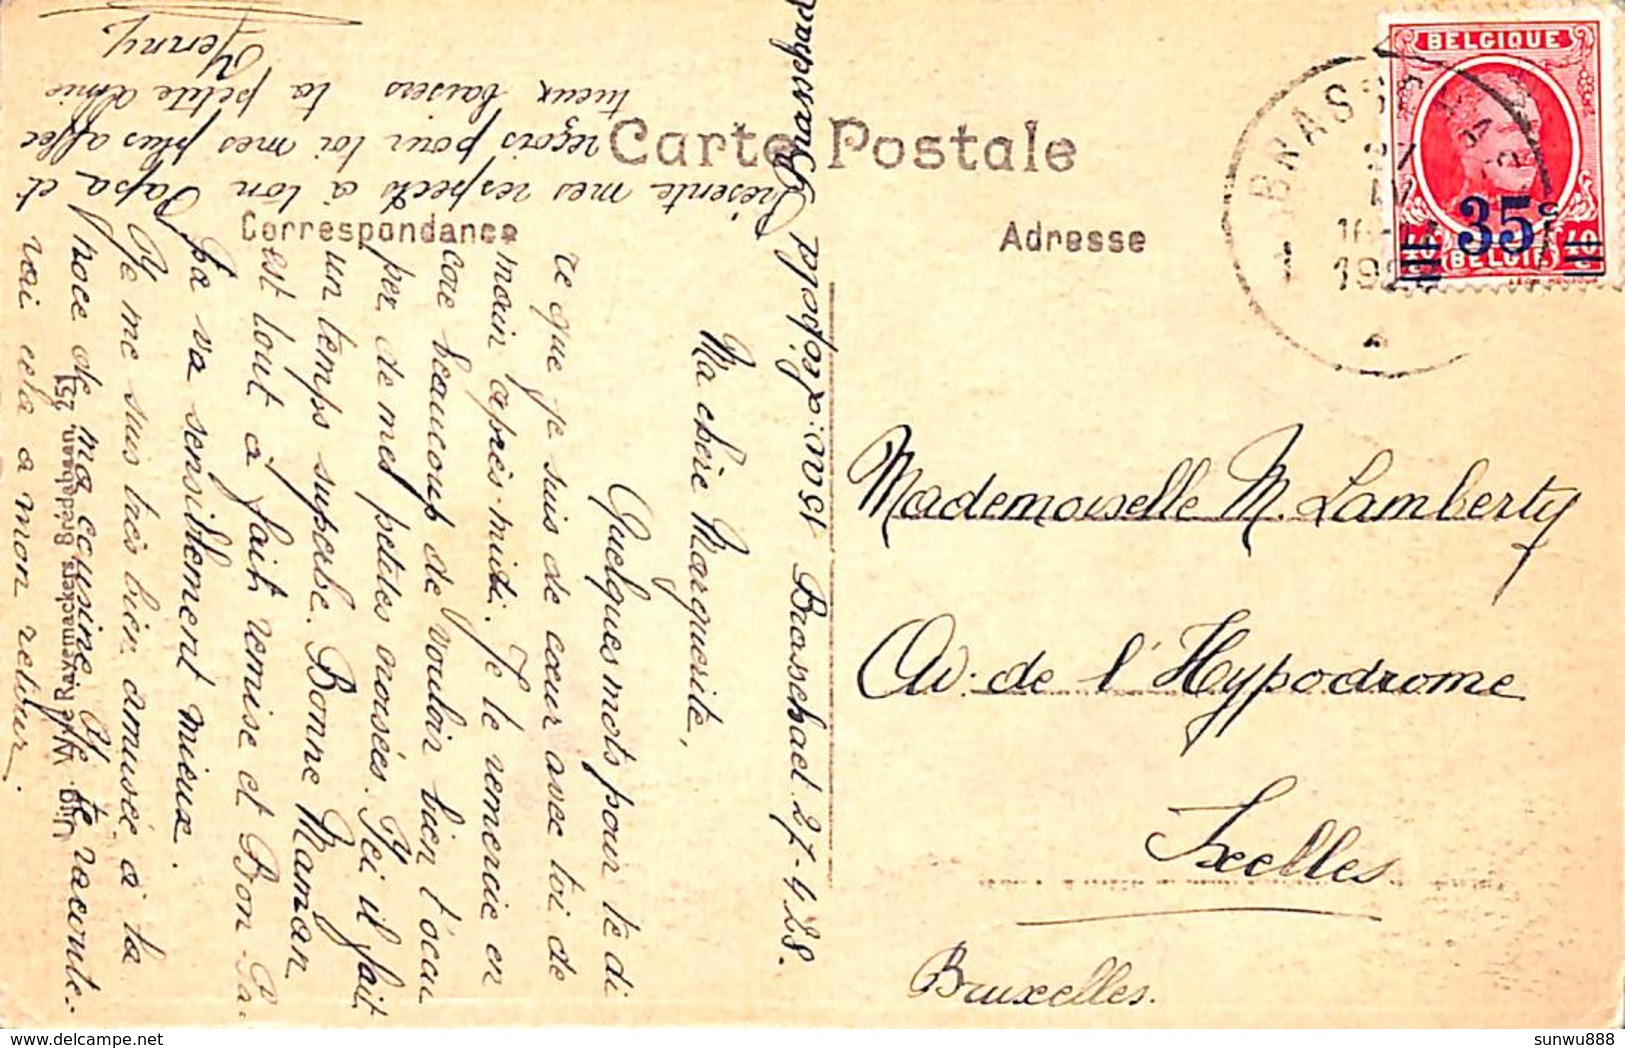 Carte Postale
Correspondance
Adresse
BELGIQUE
35
BELGIË
BRASS
27
IV
Mademoiselle M. Lamberty
Av. de l'Hypodrome
Ixelles
Bruxelles.
Brasschaet 27-4-28.
Ma chère Marguerite,
Quelques mots pour te di
re que je suis de cœur avec toi de
main après-midi. Je te remercie en
core beaucoup de vouloir bien t'occu
per de mes petites croisées. Ici il fait
un temps superbe. Bonne Maman
est tout à fait remise et Bon Pa
pa va sensiblement mieux.
Je me suis très bien amusée à la
noce de ma cousine. Je te raconte-
rai cela à mon retour.
Présente mes respects à ton Papa et
reçois pour toi mes plus affec
tueux baisers ta petite amie
Jenny.
Uitg. Wwe Rayemaeckers Bredabaan, 251
sunwu888